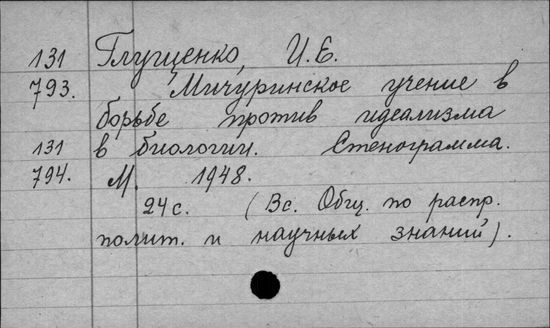 131 Глущенко, И.Е.
793. Мичуринское учение в
борьбе против идеализма
131 в биологии. Стенограмма.
794. М. 1948.
24 с. (Вс. Общ. по распр.
полит. и научных знаний).